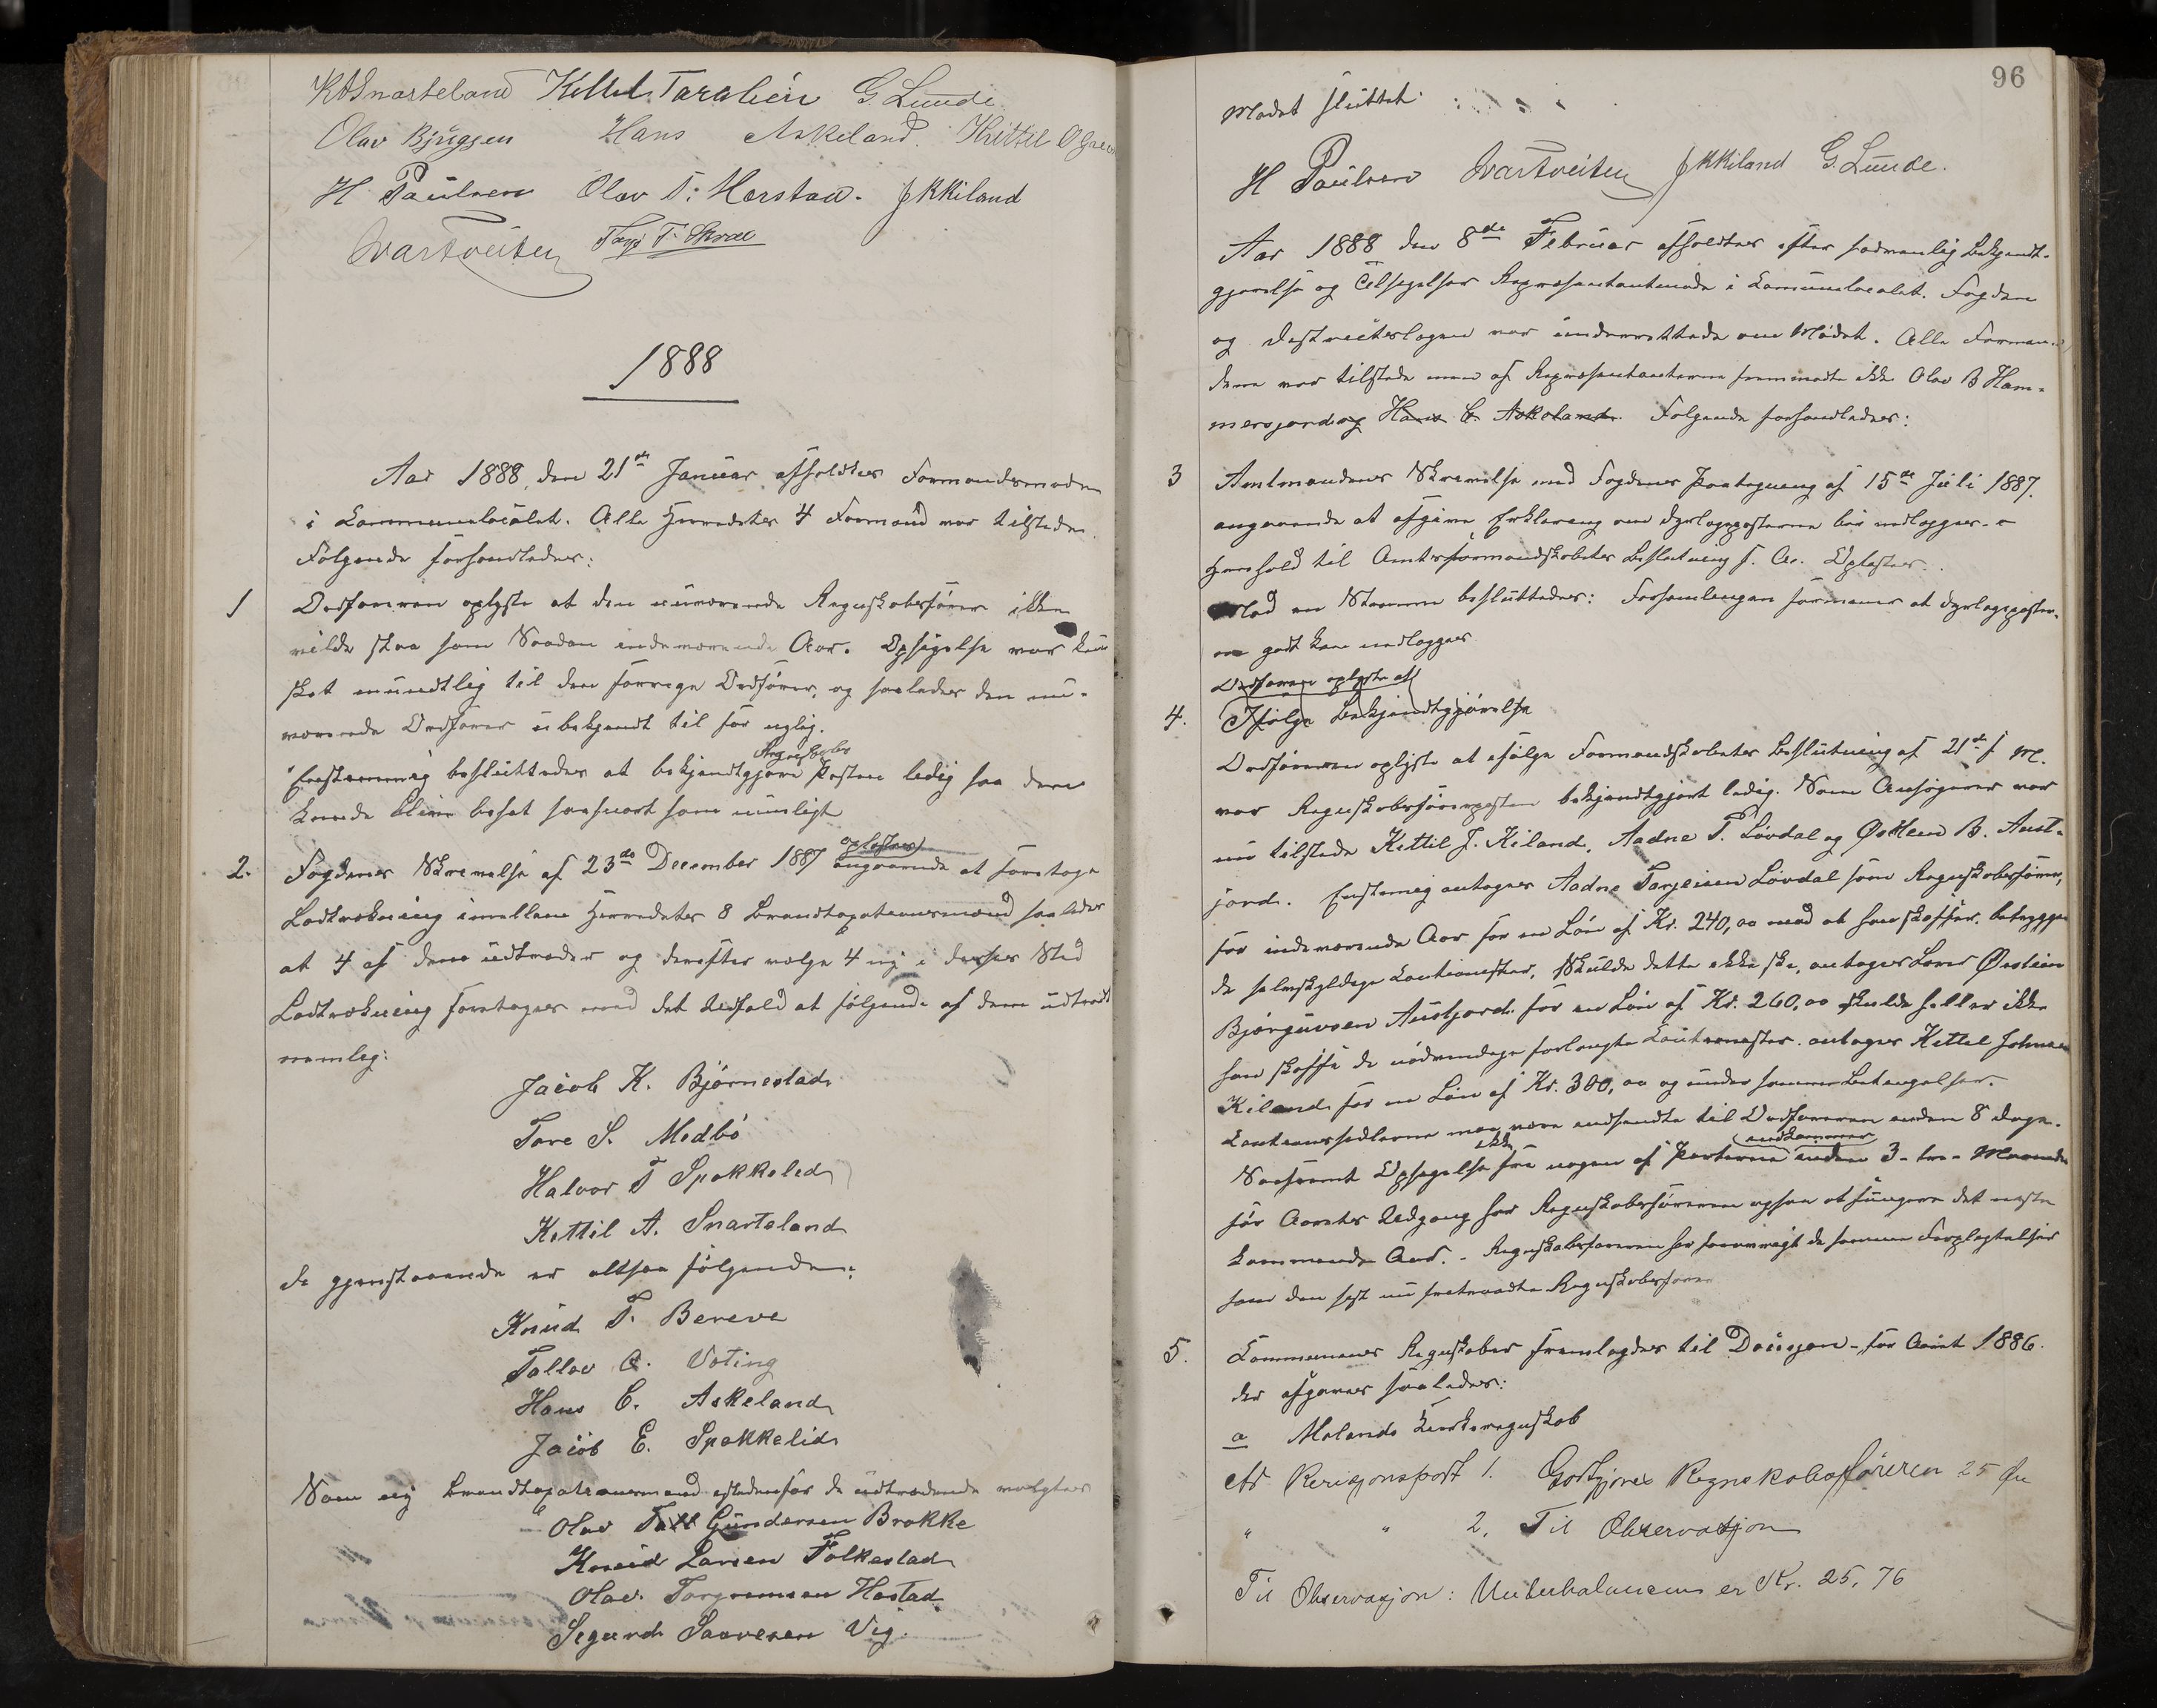 K A Snarteland Kittil Taraldlien G. Lunde
Olav Bjugsen Hans Askeland. Kittil O
H Paulsen Olav T: Harstad. J K Kiland
O Vartveiten Targ T. Skrae
1888
Aar 1888, den 21de Januar afholdtes Formandsmøde
i Kommunelocalet. Alle Herredets 4 Formænd var tilstede.
Følgende forhandledes:
1 Ordføreren oplyste at den nuværende Regnskabsfører ikke
vilde staa som Saadan indeværende Aar. Opsigelse var kun
sket mundtlig til den forrige Ordfører, og saaledes den nu-
værende Ordfører ubekjendt til for nylig.
Regnskabs
Enstemmig besluttedes at bekjendtgjøre Posten ledig saa den
kunde blive besat saasnart som muligt
oplæstes
2. Fogdens Skrivelse af 23de December 1887 angaaende at foretage
Lodtrækning imellem Herredets 8 Brandtaxationsmænd saaledes
at 4 af dem udtræder og derefter vælge 4 ny i deres Sted
Lodtrækning foretoges med det Udfald at følgende af dem udtrædt
nemlig:
Jacob K. Bjørnestad
Tore S. Medbö
Halvor T Spokkelid
Kettil A. Snarteland
de gjenstaaende er altsaa følgende:
Knud T. Bereve
Tallov O. Voting
Hans C. Askeland
Jacob E. Spokkelid
Som ny Brandtaxationsmænd istedenfor de udtrædende valgtes
Olav Tall Gundersen Brokke
Knud Larsen Folkestad
Olav Torgrimsen Hastad
Segurd Saavesen Vig.
96
Mødet sluttet
H Paulsen O Vartveiten J K Kiland G. Lunde.
Aar 1888 den 8de Februar afholdtes efter sædvanlig Bekjendt-
gjørelse og Tilsigelser Repræsentantmøde i Komunelocalet. Fogden
og Distriktslægen var underrettede om Mødet. Alle Forman-
dene var tilstede men af Repræsentanterne fremmødte ikke Olav B Ham-
mersjord og Hans C. Askeland. Følgende forhandledes:
3 Amtmandens Skrivelse med Fogdens Paategning af 15de Juli 1887.
angaaende at afgive Erklæring om Dyrlægeposterne bør nedlægges i
Henhold til Amtsformandskabets Beslutning s. A. Oplæstes.
Mod en Stemme besluttedes: Forsamlingen formener at Dyrlægeposter-
ne godt kan nedlægges.
Ordføreren oplyste at
4. Ifølge Bekjendtgjørelse
Ordføreren oplyste at ifølge Formandskabets Beslutning af 21de f M.
var Regnskabsførerposten bekjendtgjort ledig. Som Ansøgere var
nu tilstede Kittil J. Kiland, Aadne T. Løvdal og Østein B. Aust-
jord. Enstemig antoges Aadne Tarjeisen Løvdal som Regnskabsfører,
for indeværende Aar for en Løn af Kr. 240,00 med at han skaffer betryggen
de selvskyldige Kautionister. Skulde dette ikke ske, antages Lars Østein
Bjørguvsen Austjord for en Løn af Kr. 260,00 skulde heller ikke
han skaffe de nødvendige forlangte Kautionister antages Kittel Johnsen
Kiland for en Løn af Kr. 300,00 og under samme Betingelser.
Kautionssedlerne maa være indsendte til Ordføreren inden 8 Dage.
ikke indkommer
Saafremt Opsigelse fra nogen af Parterne inden 3-tre-Maaneder
før Aarets Udgang har Regnskabsføreren ogsaa at fungere det næste
kommende Aar. - Regnskabsføreren har forøvrigt de samme Forpligtelser
som den sist nu fratraadte Regnskabsfører
5. Kommunens Regnskaber fremlagdes til Decisjon - for Aaret 1886.
der afgaves saaledes:
a Molands Kirkeregnskab
Ad Revisjonspost 1. Godtgjøres Regnskabsføreren 25 Øre
" " 2. Til Observasjon
Til Observasjon: Underbalancen er Kr. 25,76